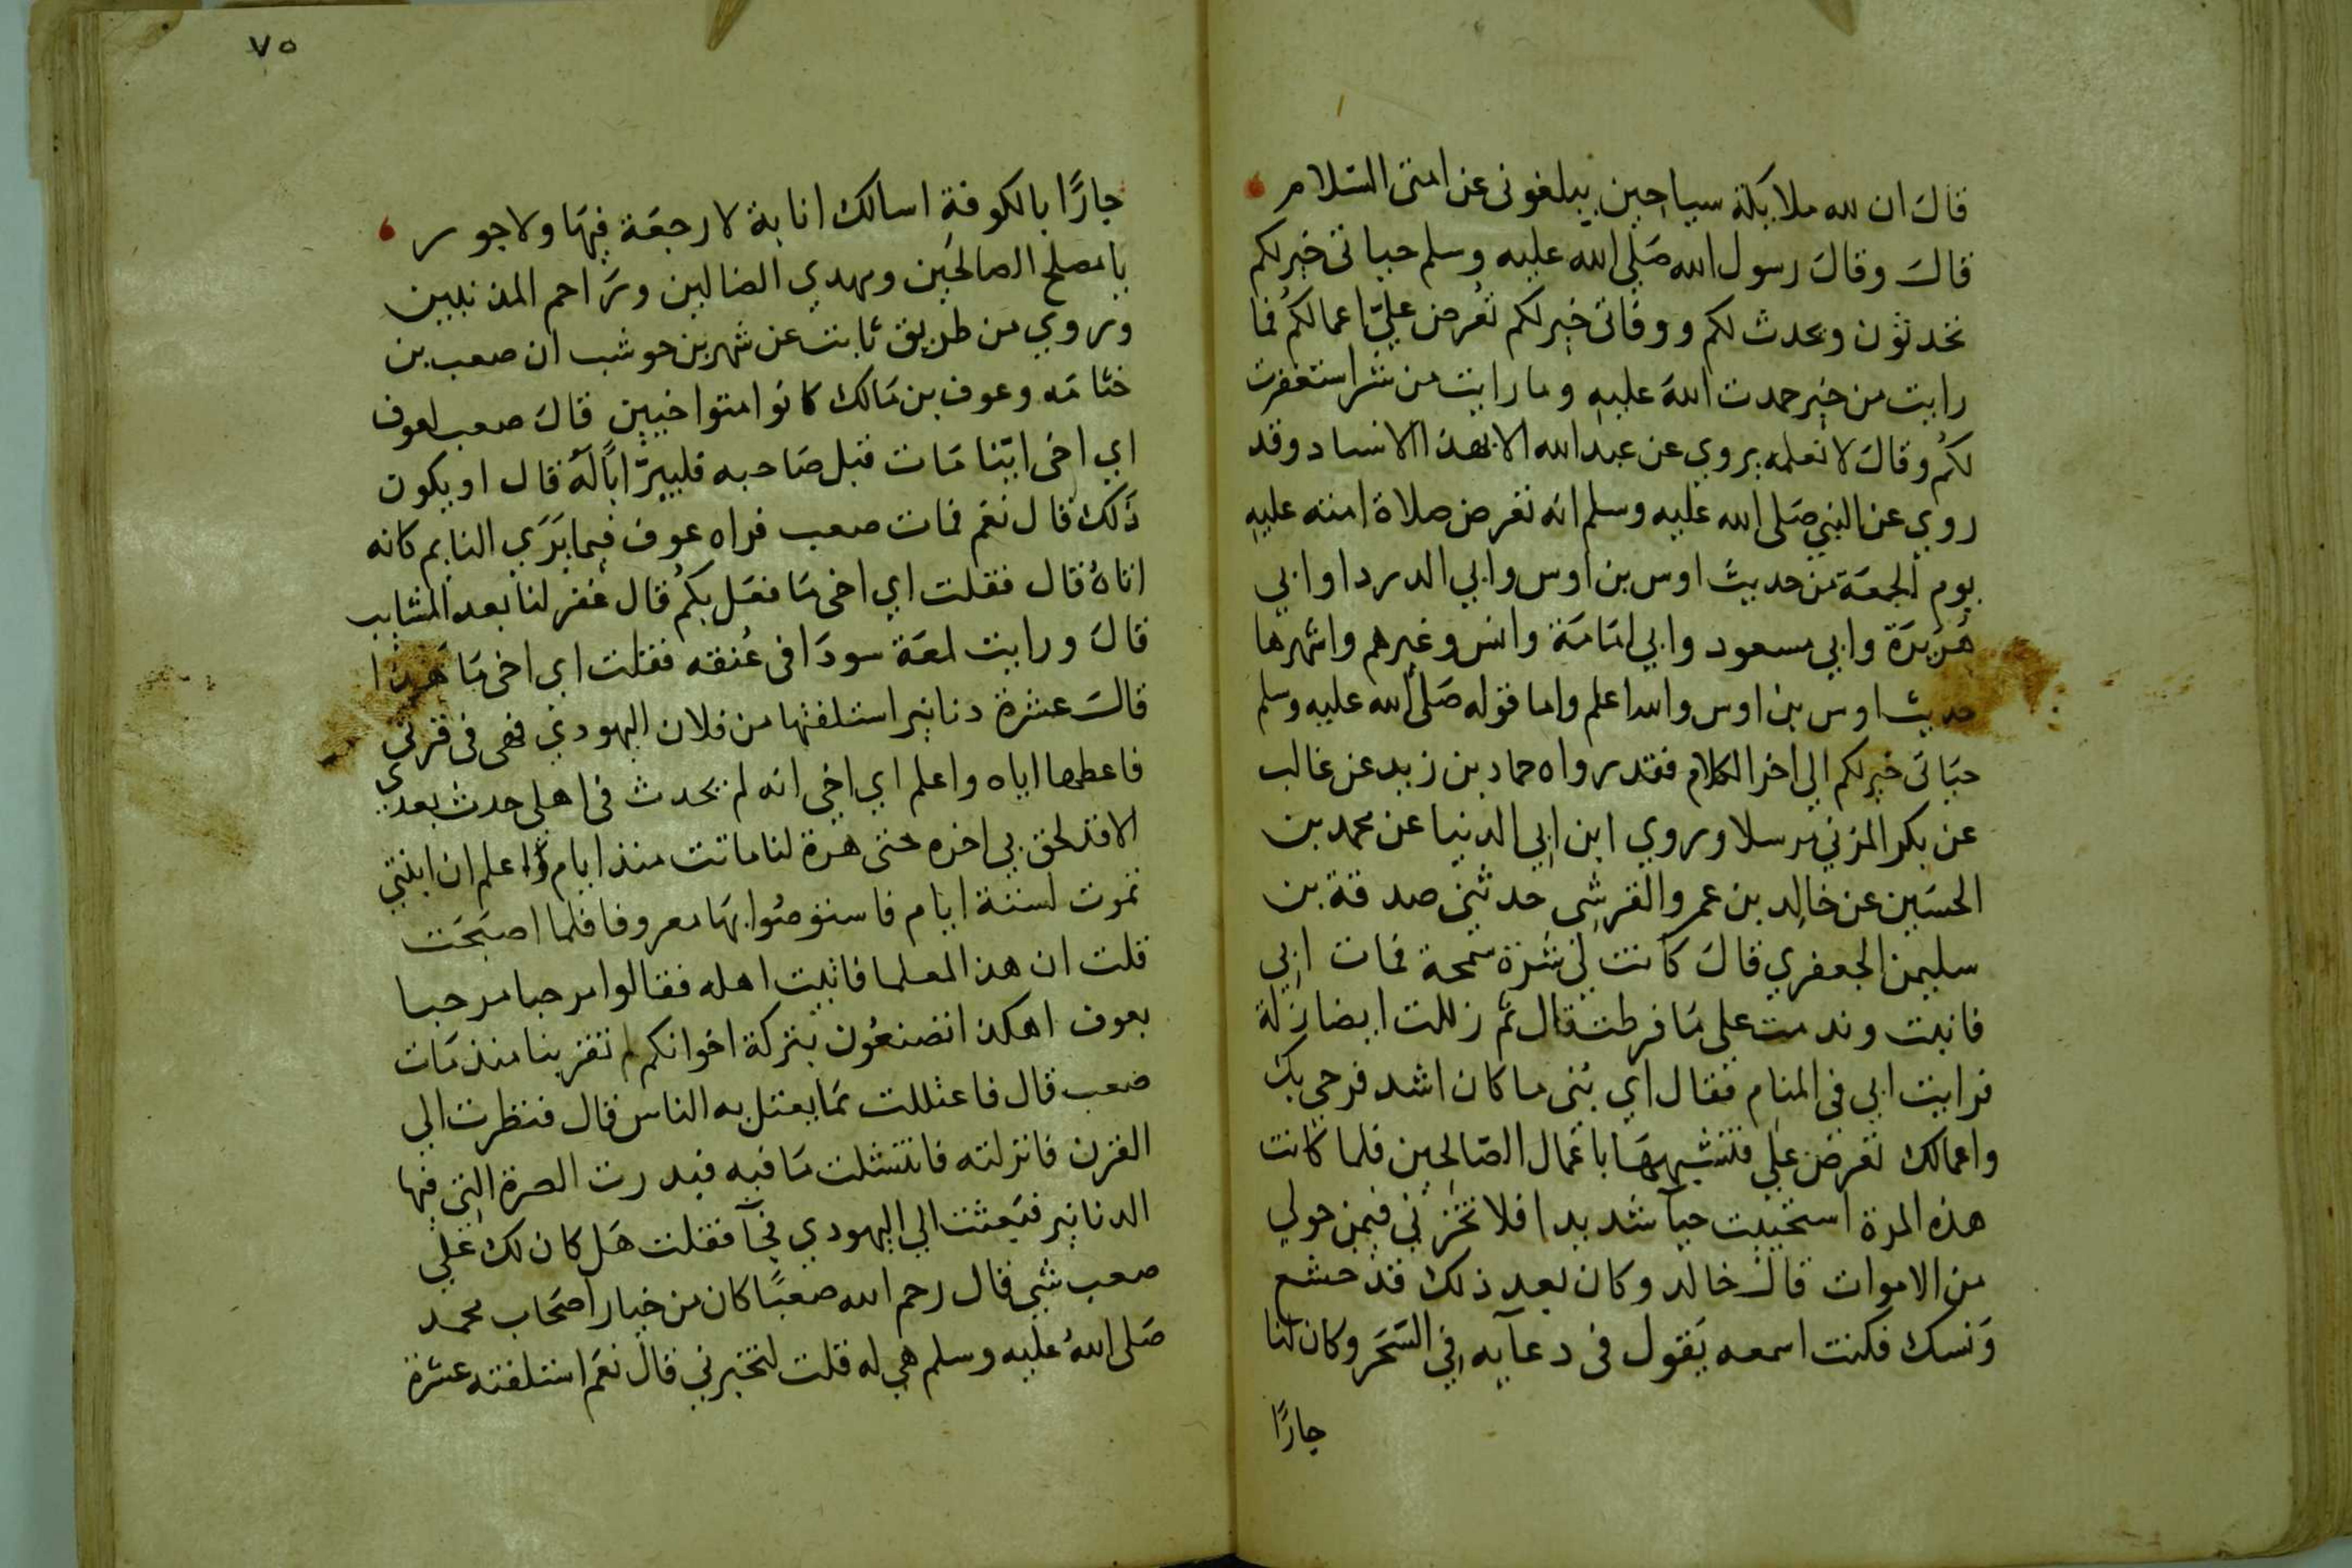 قال ان لله ملايكة سياحين يبلغوني عن امتي السلام
قال وقال رسول الله صلى الله عليه وسلم حياتي خير لكم
تحدثون ويحدث لكم ووفاتي خير لكم تعرض علي اعمالكم فما
رايت من خير حمدت الله عليه وما رايت من شر استغفرت
لكم وقال لا نعلمه يروي عن عبد الله الا بهذا الاسناد وقد
روي عن النبي صلى الله عليه وسلم انه تعرض صلاة امته عليه
يوم الجمعة من حديث اوس بن اوس وابي الدردا وابي
هريرة وابي مسعود وابي امامة وانس وغيرهم واشهرها
حديث اوس بن اوس والله اعلم واما قوله صلى الله عليه وسلم
حياتي خير لكم الي اخر الكلام فقد رواه حماد بن زيد عن غالب
عن بكر المزني مرسلا وروي ابن ابي الدنيا عن محمد بن
الحسين عن خالد بن عمرو القرشي حدثني صدقة بن
سليمن الجعفري قال كانت لي شرة سمجة فمات ابي
فانبت وندمت على ما فرطت قال ثم زللت ايضا زلة
فرايت ابي في المنام فقال اي بني ما كان اشد فرحي بك
واعمالك تعرض علي فتشبهها باعمال الصالحين فلما كانت
هذه المرة استحييت حيآ شديدا فلا تخزني فيمن حولي
من الاموات قال خالد وكان بعد ذلك قد خشع
ونسك فكنت اسمعه يقول في دعآيه في السحر وكان لنا
جارًا
٧٥
جارًا بالكوفة اسالك انابة لا رجعة فيها ولا جور
يا مصلح الصالحين ومهدي الضالين وراحم المذنبين
وروي من طريق ثابت عن شهر بن حوشب ان صعب بن
خثامه وعوف بن مالك كانوا متواخيين قال صعب لعوف
اي اخي اينا مات قبل صاحبه فليترااله قال او يكون
ذلك قال نعم فمات صعب فراه عوف فيما يري النايم كانه
اتاه قال فقلت اي اخي ما فعل بكم قال غفر لنا بعد المشايب
قال ورايت لمعة سودا في عنقه فقلت اي اخي ما هذا
قال عشرة دنانير استلفتها من فلان اليهودي فهي في قرني
فاعطها اياه واعلم اي اخي انه لم يحدث في اهلي حدث بعدي
الا قد لحق بي اخره حتى هرة لنا ماتت منذ ايام واعلم ان ابنتي
تموت لستة ايام فاستوصوا بها معروفا فلما اصبحت
قلت ان هذا لمعلما فاتيت اهله فقالوا مرحبا مرحبا
بعوف اهكذا تصنعون بتركة اخوانكم لم تقربنا منذ مات
صعب قال فاعتللت بما يعتل به الناس قال فنظرت الي
القرن فانزلته فانتثلت ما فيه فبدرت الصرة التي فيها
الدنانير فبعثت الي اليهودي فجآ فقلت هل كان لك علي
صعب شي قال رحم الله صعبًا كان من خيار اصحاب محمد
صلى الله عليه وسلم هي له قلت لتخبرني قال نعم استلفته عشرة